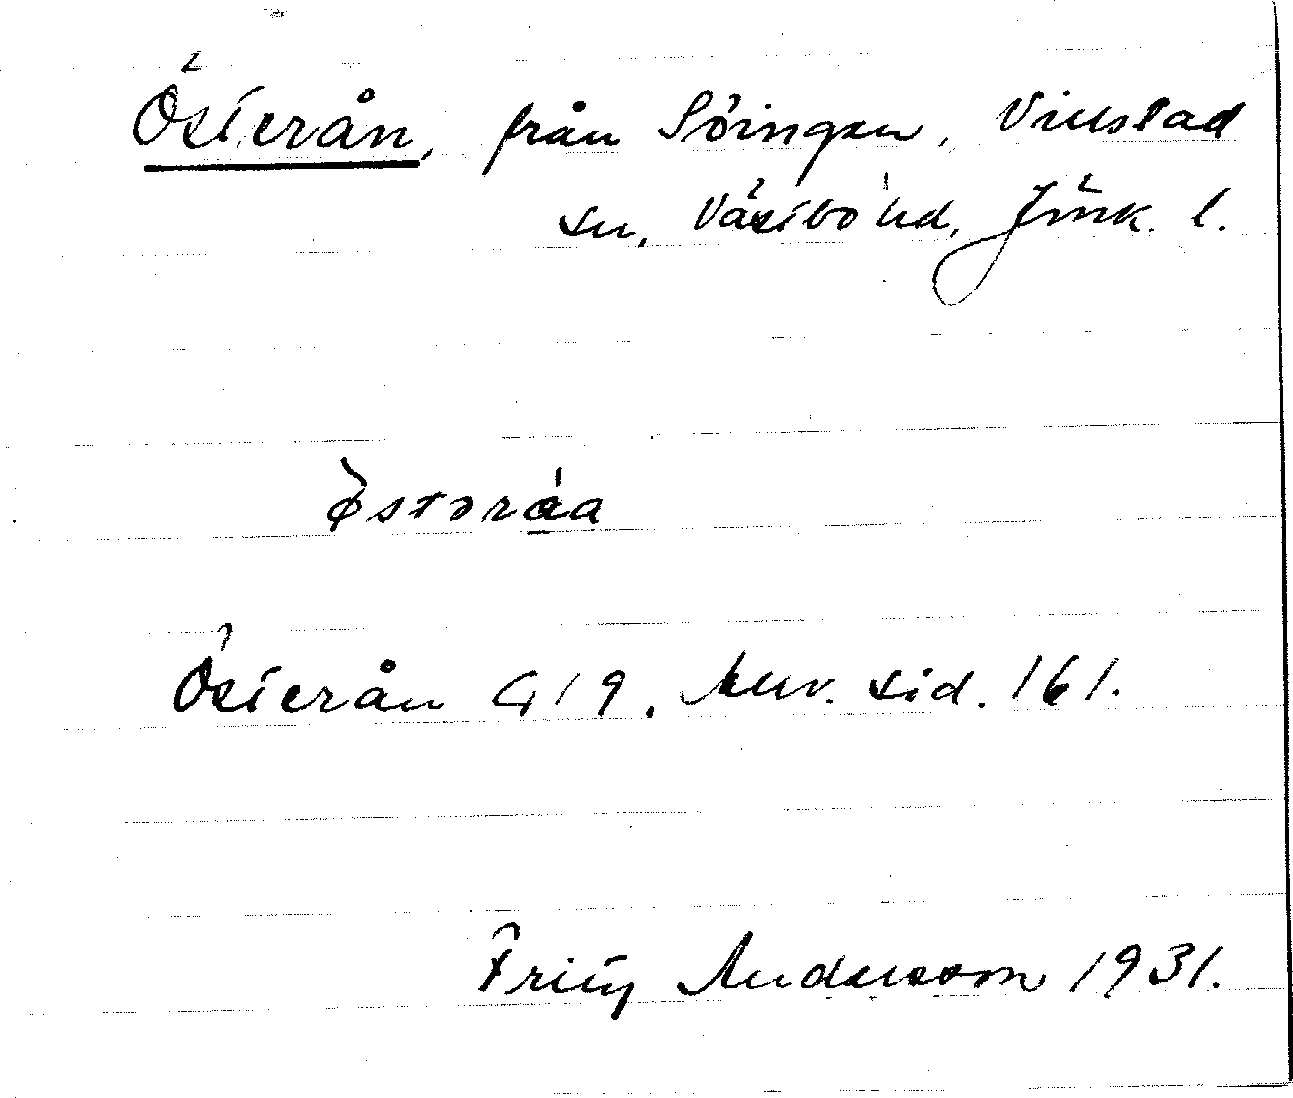 Österån, från Söingen, Villstad
sn, Västbo hd, Jönk. l.
østəråa
Österån G 19. Anv. sid. 161.
Fritz Andersson 1931.